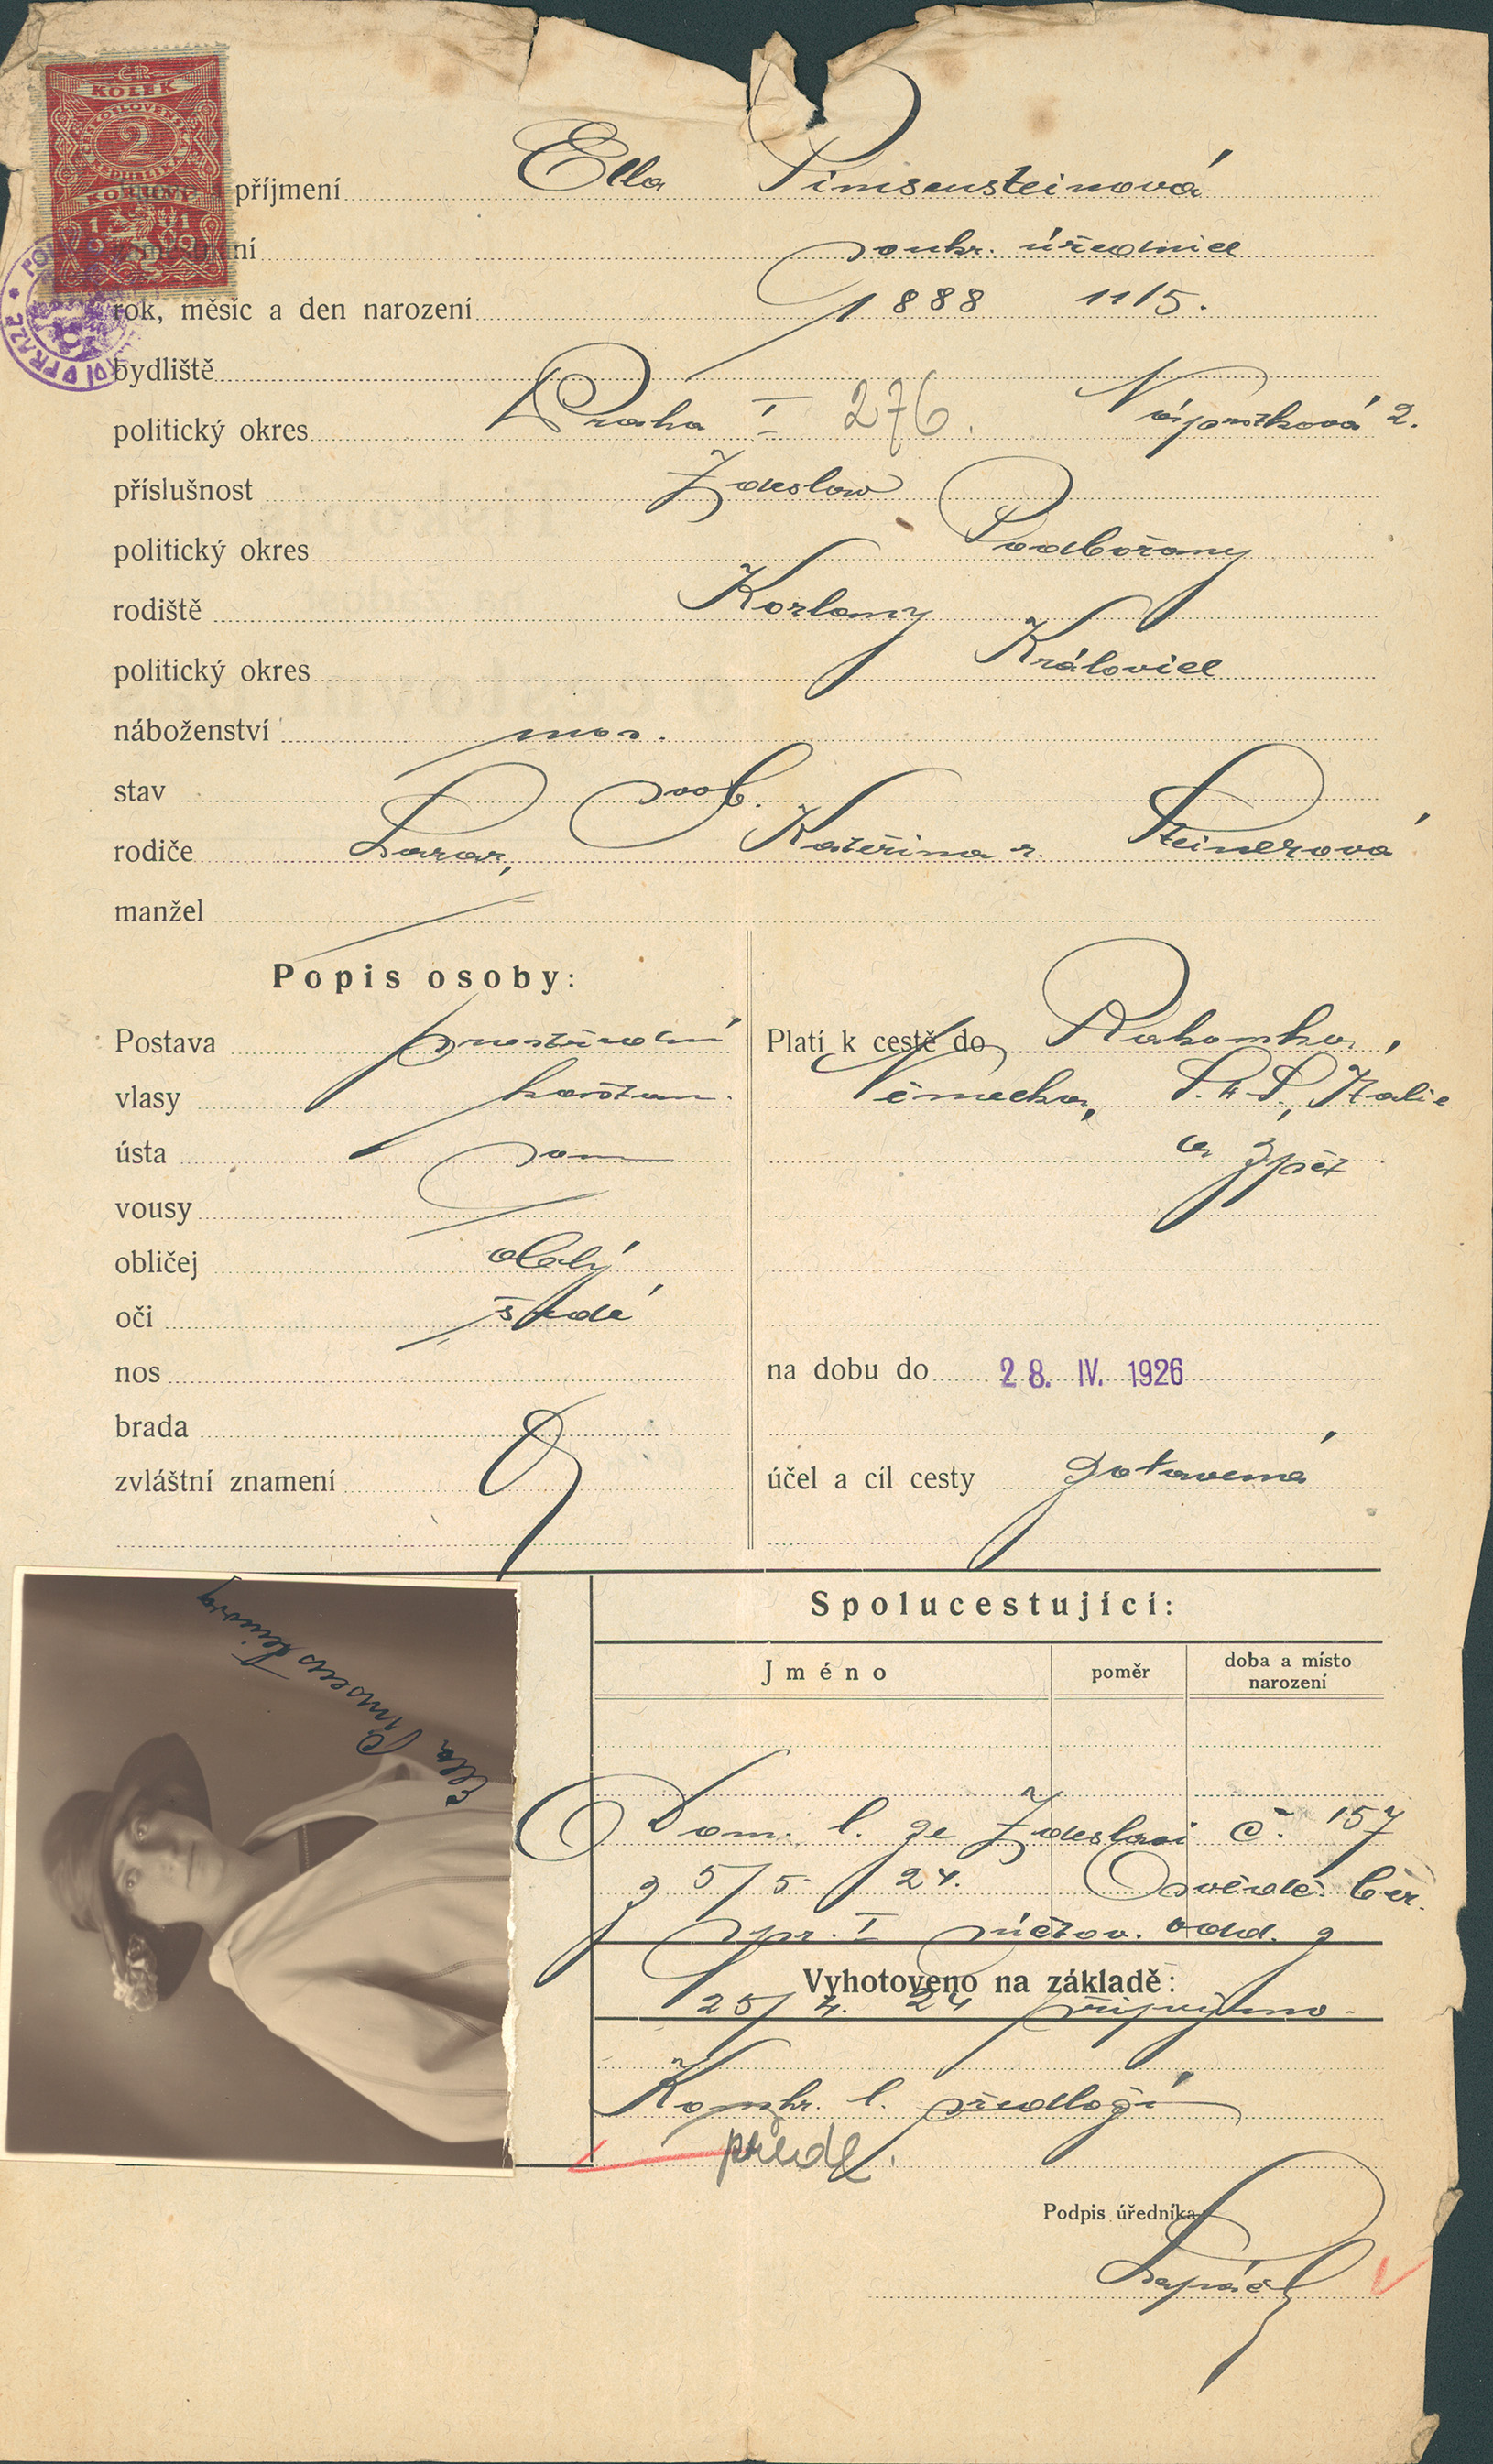 Č.S.
KOLEK
2
KORUNY
1919
příjmení Ella Pimsensteinová
zaměstnání soukr. úřednice
rok, měsíc a den narození 1888 11/5.
bydliště
politický okres Praha I 276. Náprstková 2.
příslušnost Zdeslav
politický okres Podbořany
rodiště Kozlany
politický okres Kralovice
náboženství mos.
stav svob.
rodiče Lazar, Kateřina r. Steinerová
manžel
Popis osoby:
Postava prostřední
vlasy kaštan.
ústa soum
vousy
obličej oblý
oči šedé
nos
brada
zvláštní znamení
Platí k cestě do Rakouska,
Německa, S.H.S., Italie
a zpět
na dobu do 28. IV. 1926
účel a cíl cesty zotavená
Ella Pimsensteinová
Spolucestující:
Jméno poměr doba a místo narození
Dom. l. ze Zdeslavi č. 157
z 5/5 24. Osvědč. ber.
spr. I súčtov. odd. z
Vyhotoveno na základě:
25/4. 24 připojeno.
Konskr. l. předloží
předl.
Podpis úředníka